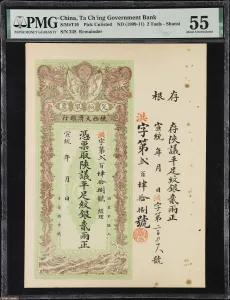 PMG
PAPER MONEY GUARANTY
China, Ta Ch'ing Government Bank
S/M#T10 Pick Unlisted ND (1909-11) 2 Taels - Shansi
S/N 248 Remainder
55
About Uncirculated
存根
存陝議平足紋銀貳兩正
宣統 年 月 日
洪字第貳百肆拾捌號
陝西大清銀行
洪字第貳百肆拾捌號 經理
憑票取陝議平足紋銀貳兩正
宣統 年 月 日